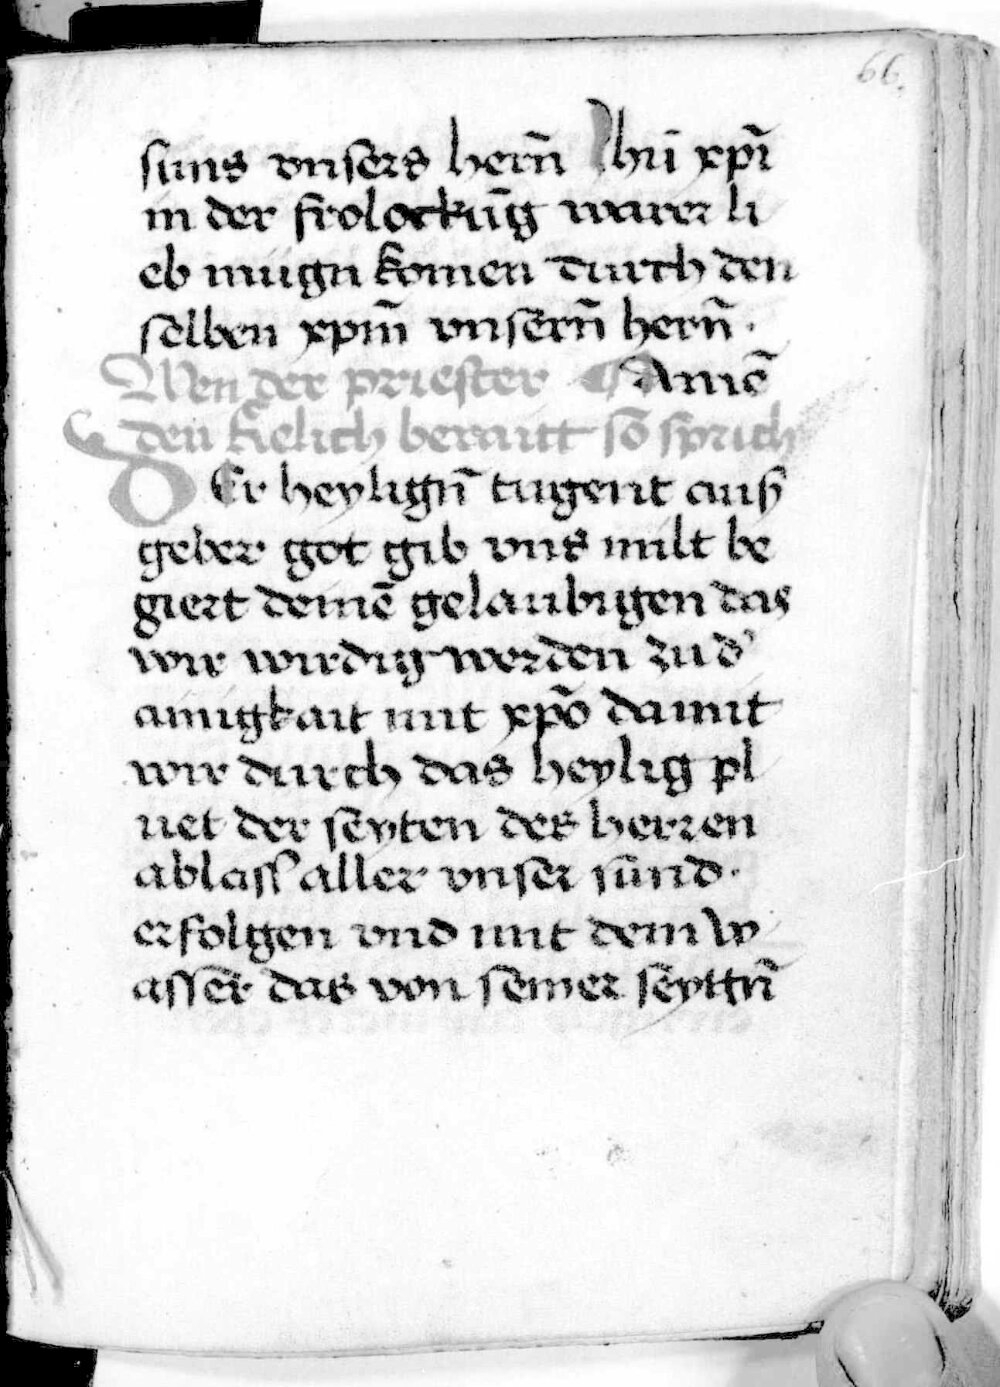 66.
suns vnsers hern̄ Jhū xp̄i
in der frolockūg warer li
eb mügn komen durch den
selben xpm̄ vnsern̄ hern̄.
Wen der priester Amē
den kielich beraitt so sprich
DEr heylign̄ tugent aus
geber got gib vns milt be
giert deinē gelaubigen das
wir wirdig werden zu d'
ainigkait mit xpō damit
wir durch das heylig pl
uet der seyten des herren
ablass aller vnser sünd.
erfolgen vnd mit dem w
asser das von seiner seyttn̄